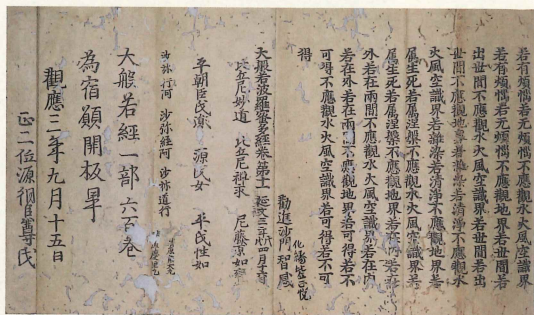 若有煩惱若无煩惱不應觀水火風空識界
若有煩惱若无煩惱不應觀地界若世間若
出世間不應觀水火風空識界若世間若出
世間不應觀地界若雜染若清淨不應觀水
火風空識界若雜染若清淨不應觀地界若
屬生死若屬涅槃不應觀水火風空識界若
屬生死若屬涅槃不應觀地界若在內若在
外若在兩間不應觀水火風空識界若在內
若在外若在兩間不應觀地界若可得若不
可得不應觀水火風空識界若可得若不可
得
化緣比丘
勸進沙門智感
大般若波羅蜜多經卷第十一
比丘尼妙道 比丘尼
平朝臣氏 源氏女 平氏性如
沙弥行阿 沙弥經阿 沙弥道行
大般若經一部六百卷
為宿願開板畢
觀應三年九月十五日
正二位源朝臣尊氏